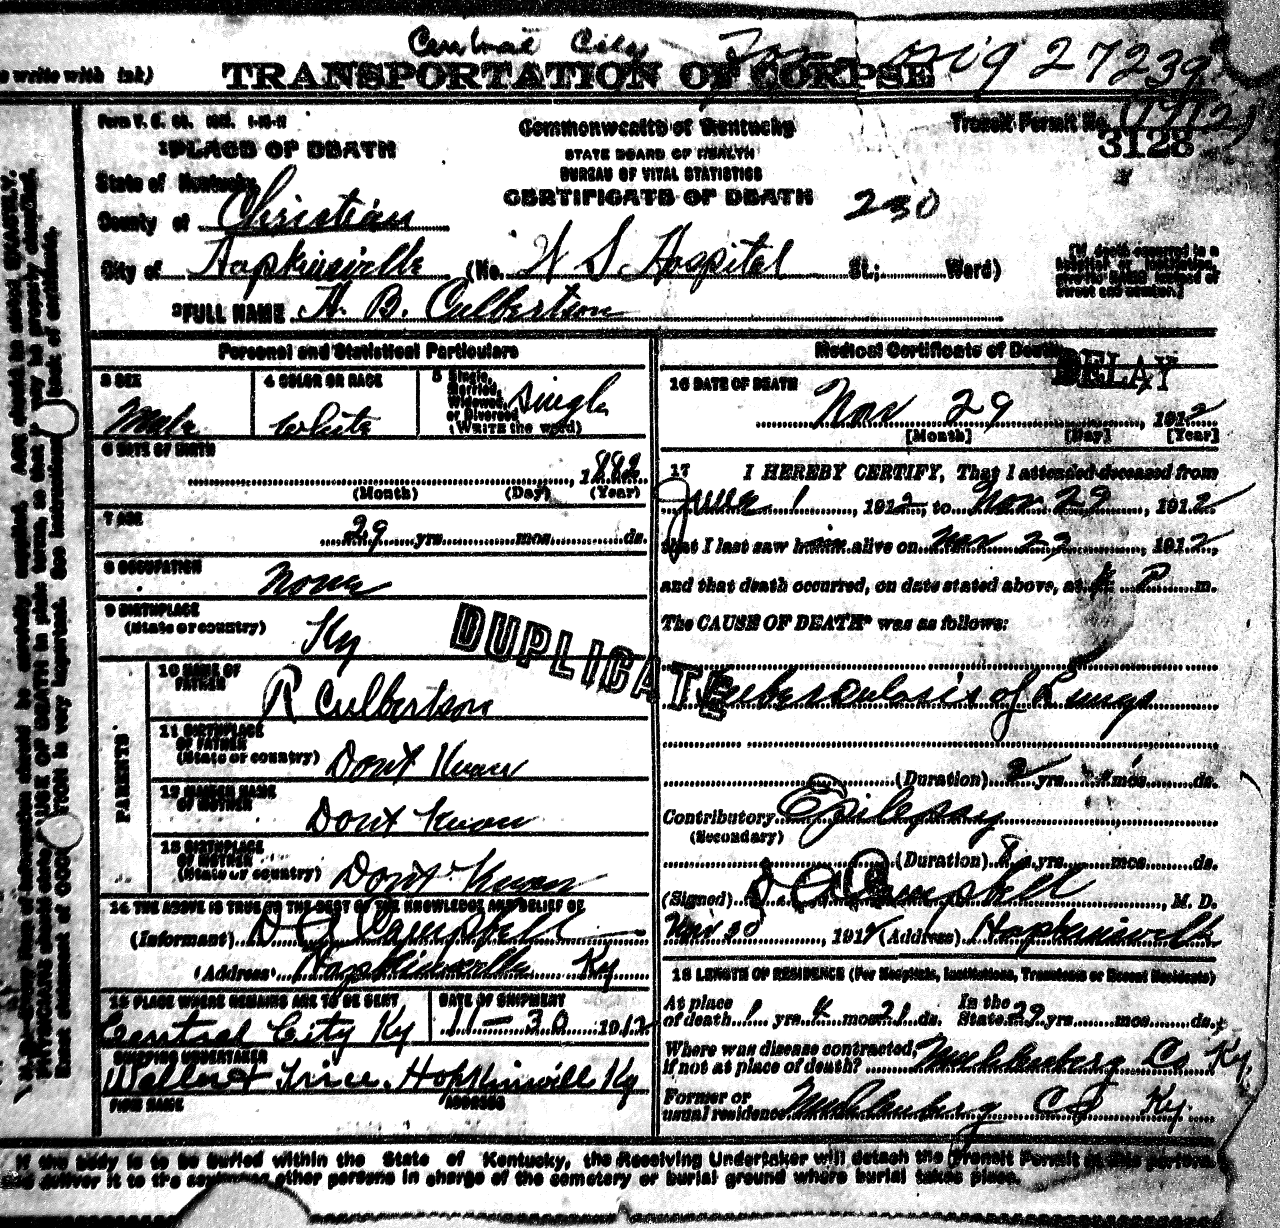 Central City For orig 27239
write with ink) TRANSPORTATION OF CORPSE
(1912)
Form V. S.
Commonwealth of Kentucky
Transit Permit No. 3128
1 PLACE OF DEATH
STATE BOARD OF HEALTH
State of Kentucky
BUREAU OF VITAL STATISTICS
CERTIFICATE OF DEATH 230
County of Christian
City of Hopkinsville (No. W S Hospital St.; Ward)
[If death occurred in a
2 FULL NAME H. B. Culbertson
Personal and Statistical Particulars
3 SEX
Male
4 COLOR OR RACE
White
5 Single,
Married,
Widowed,
or Divorced
(WRITE the word)
Single
6 DATE OF BIRTH
, 1882
(Month) (Day) (Year)
7 AGE
29 yrs. mos. ds.
8 OCCUPATION
None
9 BIRTHPLACE
(State or country) Ky
DUPLICATE
PARENTS
10 NAME OF
FATHER
R Culbertson
11 BIRTHPLACE
OF FATHER
(State or country) Dont Know
12 MAIDEN NAME
OF MOTHER
Dont Know
13 BIRTHPLACE
OF MOTHER
(State or country) Dont Know
14 THE ABOVE IS TRUE TO THE BEST OF MY KNOWLEDGE AND BELIEF OF
(Informant) Campbell
(Address) Hopkinsville Ky
15 PLACE WHERE REMAINS ARE TO BE SENT
Central City Ky
DATE OF SHIPMENT
11-30 1912
SHIPPING UNDERTAKER
Hopkinsvill Ky
FIRM NAME ADDRESS
Medical Certificate of Death
DELAY
16 DATE OF DEATH
Nov 29, 1912
[Month] [Day] [Year]
17 I HEREBY CERTIFY, That I attended deceased from
June 1, 1912, to Nov 29, 1912
that I last saw him alive on Nov 29, 1912,
and that death occurred, on date stated above, at P m.
The CAUSE OF DEATH* was as follows:
Tuberculosis of Lungs
(Duration) 2 yrs. mos. ds.
Contributory Epilepsy
(Secondary)
(Duration) 8 yrs. mos. ds.
(Signed) Campbell, M. D.
Nov 30, 1912 (Address) Hopkinsvill
18 LENGTH OF RESIDENCE (For Hospitals, Institutions, Transients or Recent Residents)
At place
of death 1 yrs. mos. 21 ds.
In the
State 29 yrs. mos. ds.
Where was disease contracted,
if not at place of death? Muhlenberg Co Ky.
Former or
usual residence Muhlenberg Co Ky.
If the body is to be buried within the State of Kentucky, the Receiving Undertaker will detach the Transit Permit at this
and deliver it to the other persons in charge of the cemetery or burial ground where burial takes place.